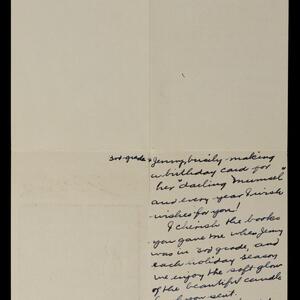 3rd grade
Jenny, busily making
a birthday card for
her "darling Mumsel"
and every year I wish
wishes for you!
I cherish the books
you gave me when Jenny
was in 3rd grade, and
each holiday season
we enjoy the soft glow
of the beautiful candle
you sent.